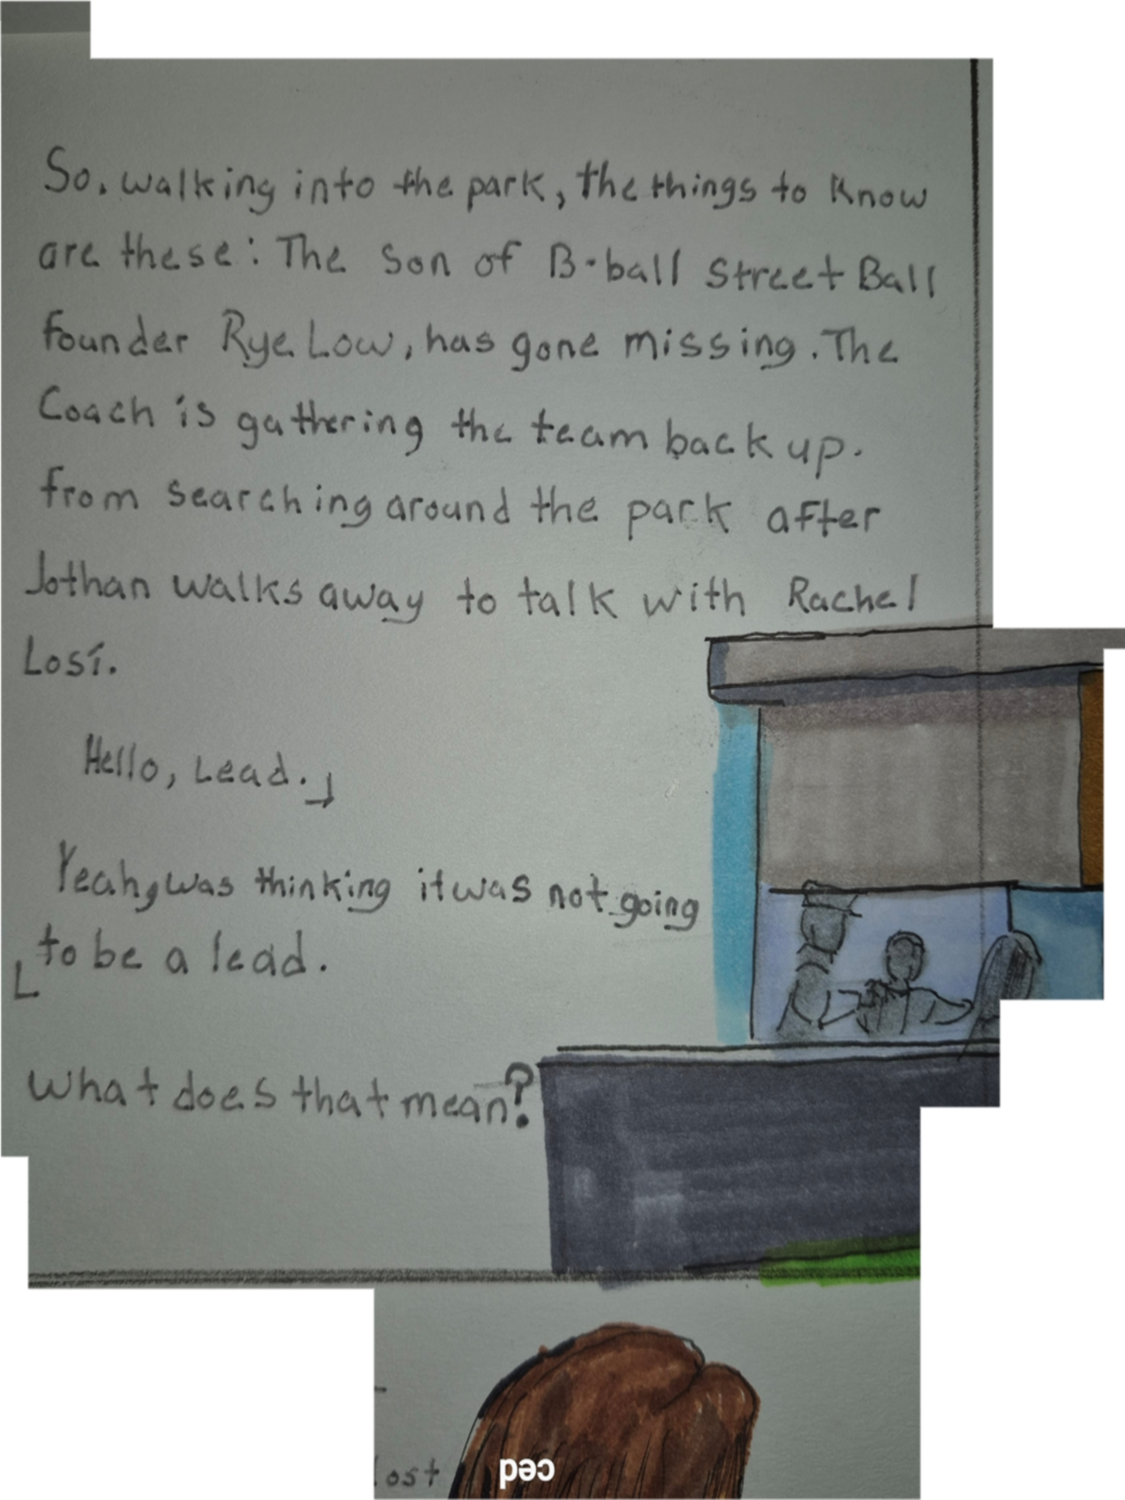 So, walking into the park, the things to know
are these: The Son of B-ball Street Ball
founder Rye Low, has gone missing. The
Coach is gathering the team back up.
from searching around the park after
Jothan walks away to talk with Rachel
Lost.
Hello, Lead.
Yeah, was thinking it was not going
to be a lead.
What does that mean?
ost
ced